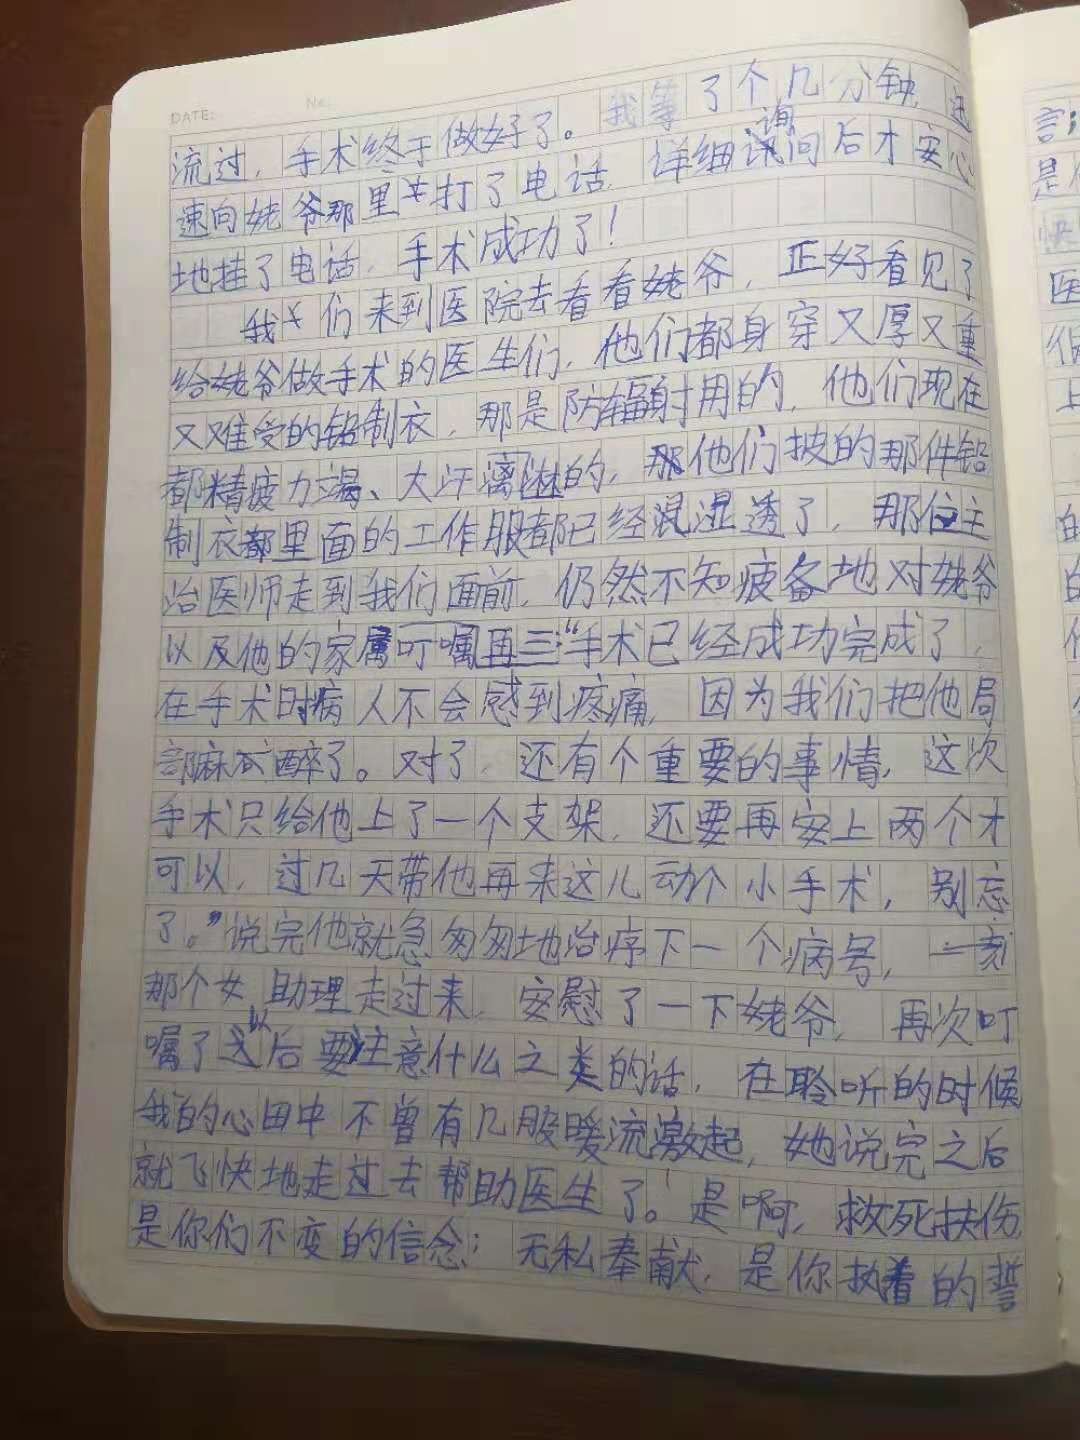 DATE: No.
流过，手术终于做好了。我等了个几分钟，迅
速向姥爷那里打了电话，详细询问后才安心
地挂了电话，手术成功了！
我们来到医院去看看姥爷，正好看见了
给姥爷做手术的医生们，他们都身穿又厚又重
又难受的铅制衣，那是防辐射用的，他们现在
都精疲力竭、大汗漓淋的，他们披的那件铅
制衣都里面的工作服都已经混湿透了，那位主
治医师走到我们面前，仍然不知疲备地对姥爷
以及他的家属叮嘱再三：“手术已经成功完成了，
在手术时病人不会感到疼痛，因为我们把他局
部麻醉了。对了，还有个重要的事情，这次
手术只给他上了一个支架，还要再安上两个才
可以，过几天带他再来这儿动个小手术，别忘
了。”说完他就急匆匆地治疗下一个病号，
那个女助理走过来，安慰了一下姥爷，再次叮
嘱了以后要注意什么之类的话，在聆听的时候
我的心田中不曾有几股暖流激起，她说完之后
就飞快地走过去帮助医生了。是啊，救死扶伤，
是你们不变的信念；无私奉献，是你执着的誓
言；
是
快
医
上
的